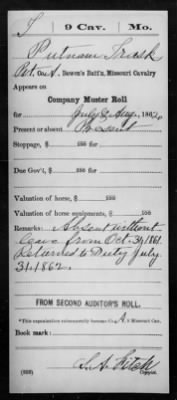 T 9 Cav. Mo.
Putnam Trask
Pvt. Co. A, Bowen's Batt'n, Missouri Cavalry
Appears on
Company Muster Roll
for July & Aug., 1862.
Present or absent Present
Stoppage, $ 100
Due Gov't, $ 100
Valuation of horse, $ 100
Valuation of horse equipments, $ 100
Remarks: Absent without
leave from Oct. 31, 1861.
Returned to Duty July
31. 1862.
FROM SECOND AUDITOR'S ROLL.
*This organization subsequently became Co. A, 9 Missouri Cav.
Book mark:
S. A. Fitch
Copyist.